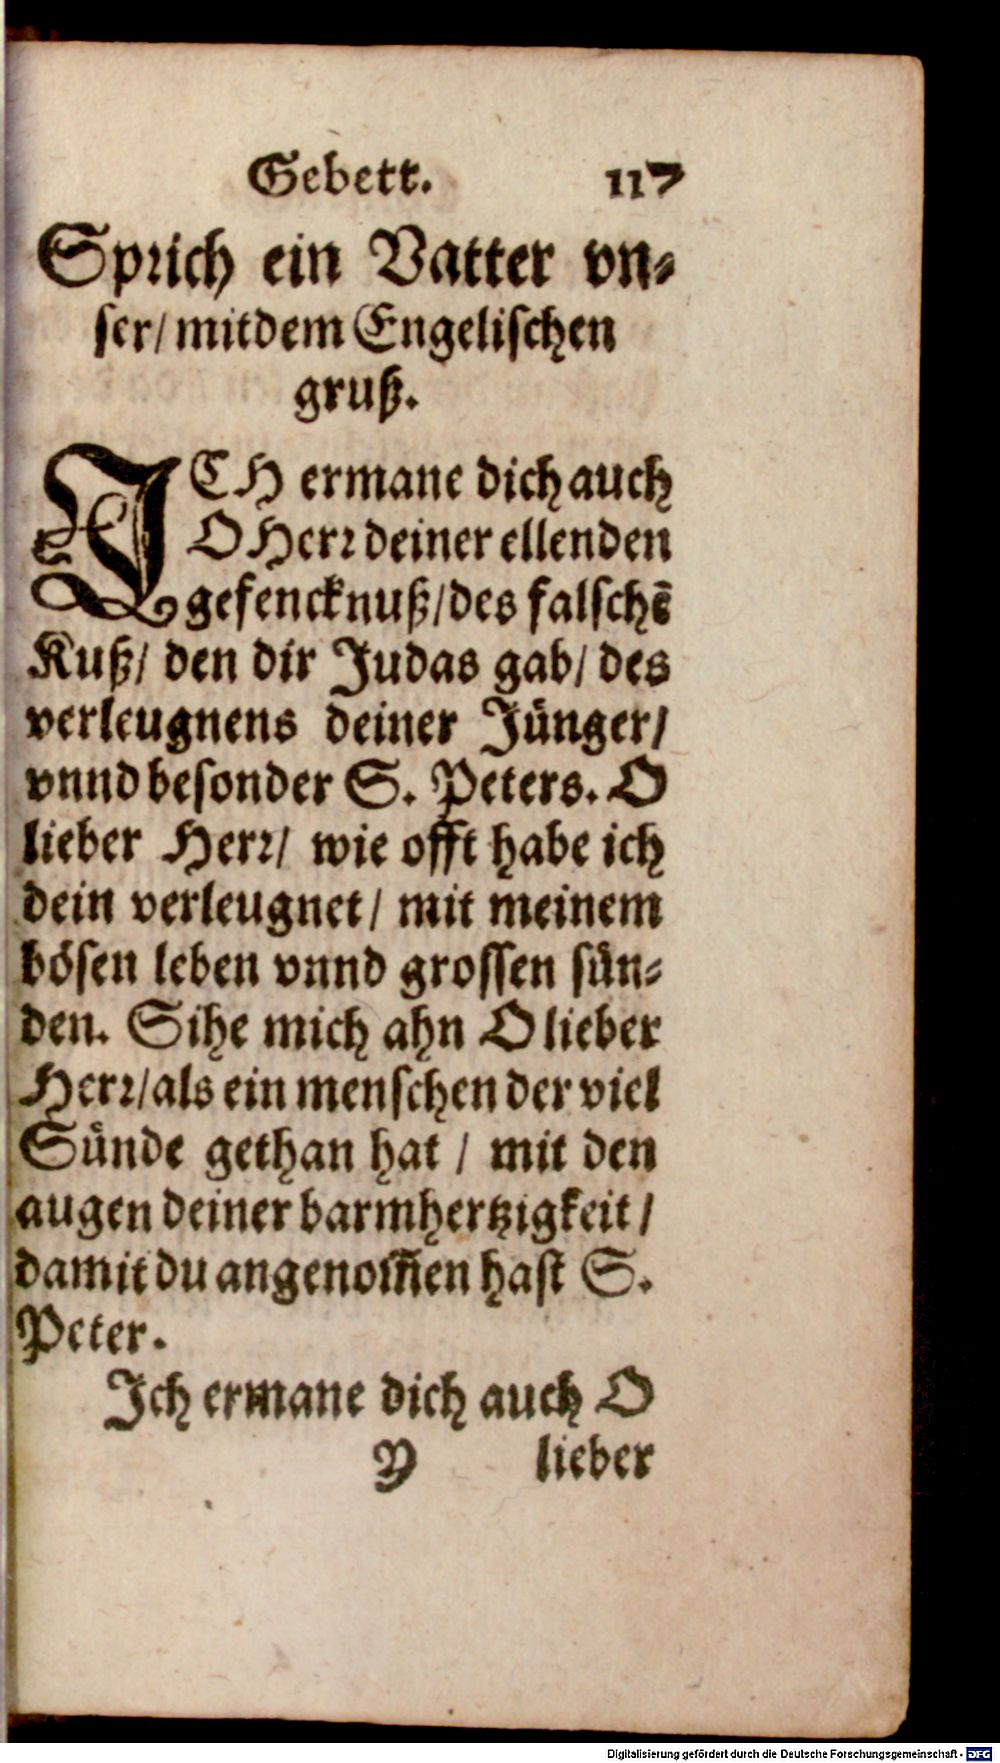 Gebett. 117
Sprich ein Vatter vn⸗
ser/ mit dem Engelischen
gruß.
ICH ermane dich auch
O Herr deiner ellenden
gefencknuß/ des falschē
Kuß/ den dir Judas gab/ des
verleugnens deiner Jünger/
vnnd besonder S. Peters. O
lieber Herr/ wie offt habe ich
dein verleugnet/ mit meinem
bösen leben vnnd grossen sün⸗
den. Sihe mich ahn O lieber
Herr/ als ein menschen der viel
Sünde gethan hat / mit den
augen deiner barmhertzigkeit/
damit du angenom̃en hast S.
Peter.
Ich ermane dich auch O
Y lieber
Digitalisierung gefördert durch die Deutsche Forschungsgemeinschaft - DFG